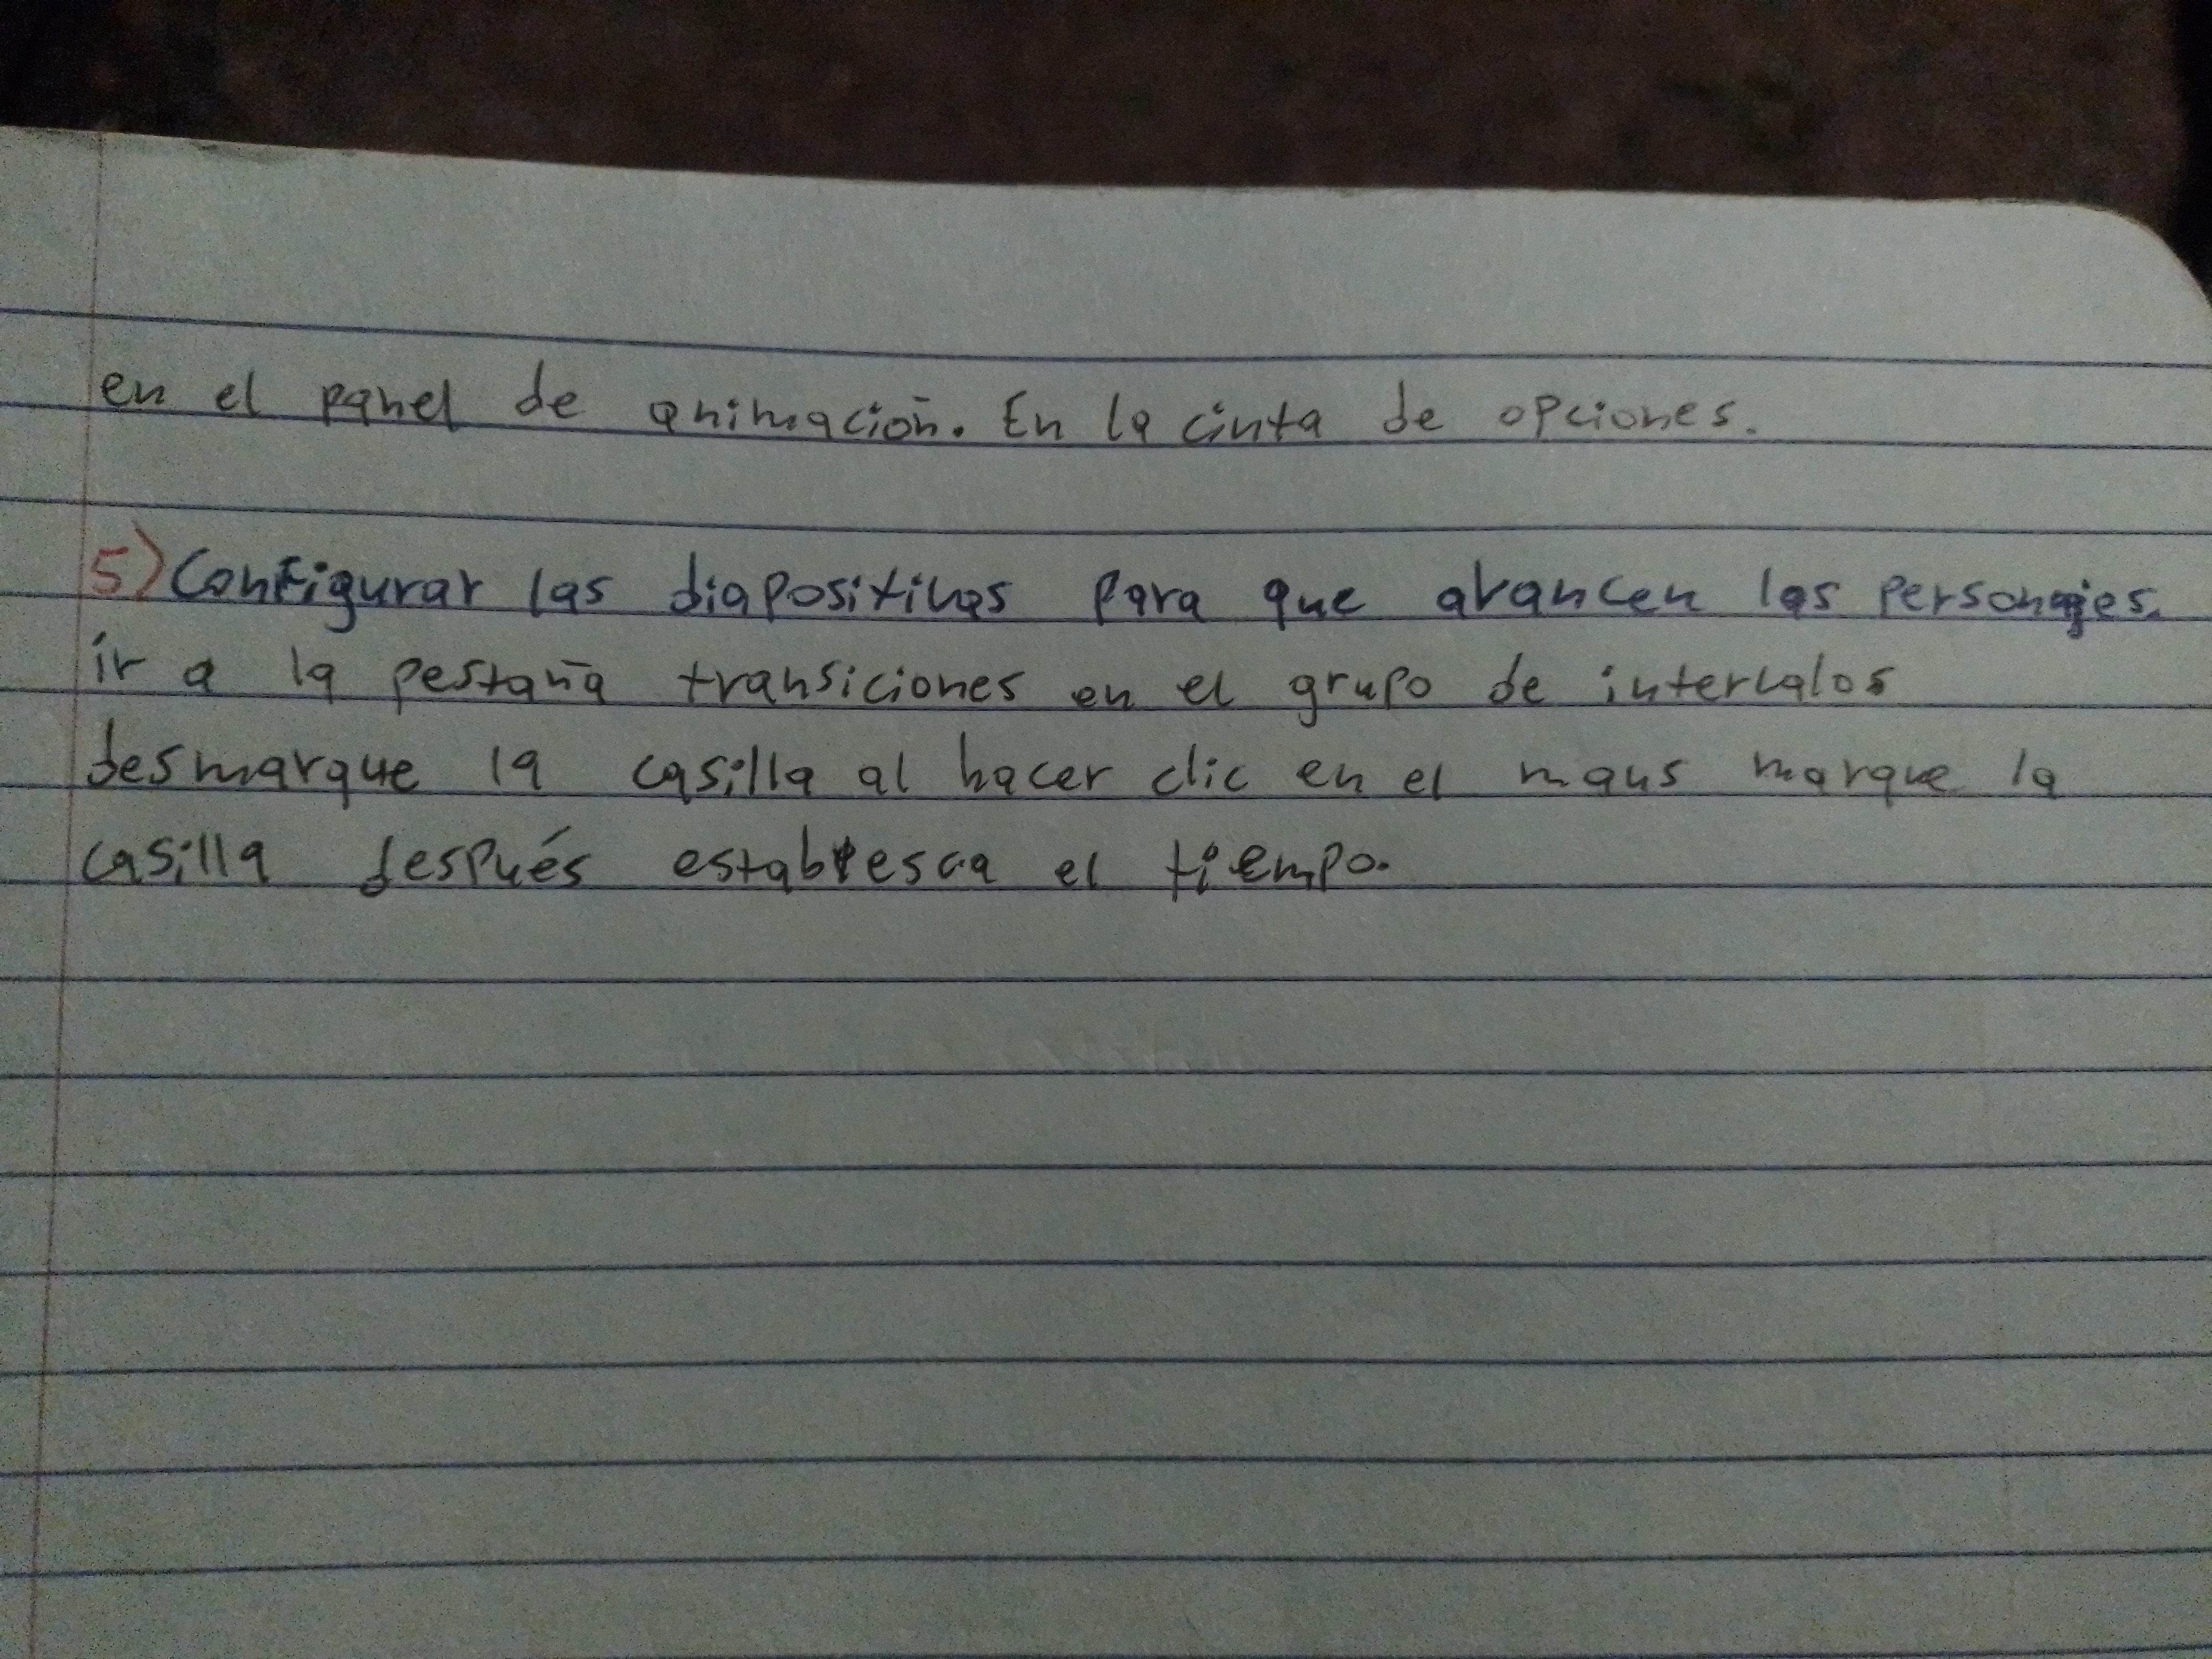 en el panel de animación. En la cinta de opciones.
5) Configurar las diapositivas para que avancen los personajes.
ir a la pestaña transiciones en el grupo de intervalos
desmarque la casilla al hacer clic en el maus marque la
casilla después establesca el tiempo.